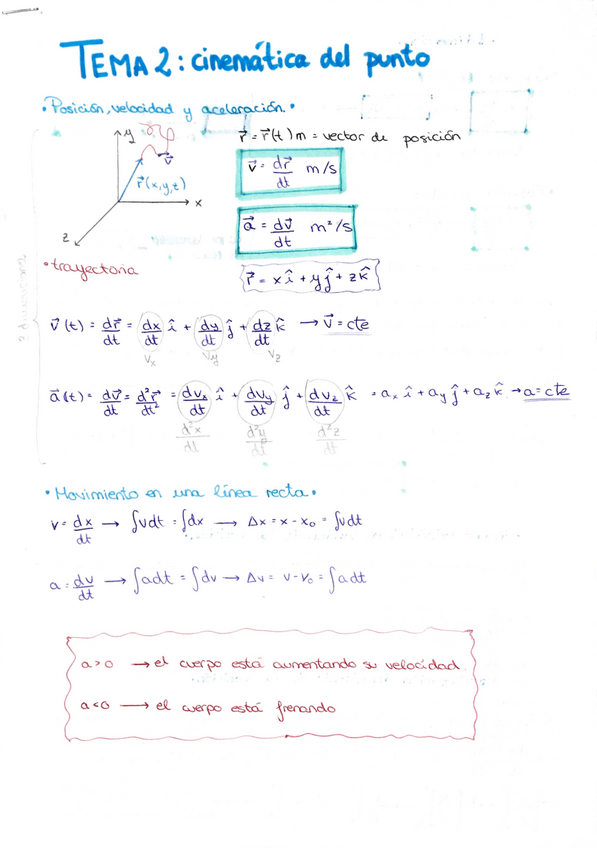 TEMA 2: cinemática del punto
• Posición, velocidad y aceleración.•
y
v⃗
r⃗(x,y,z)
x
z
r⃗ = r⃗(t) m = vector de posición
v⃗ = dr⃗/dt m/s
a⃗ = dv⃗/dt m²/s
• trayectoria
r⃗ = x î + y ĵ + z k̂
v⃗(t) = dr⃗/dt = dx/dt î + dy/dt ĵ + dz/dt k̂ → v⃗ = cte
Vx Vy Vz
a⃗(t) = dv⃗/dt = d²r⃗/dt² = dvx/dt î + dvy/dt ĵ + dvz/dt k̂ = ax î + ay ĵ + az k̂ → a = cte
d²x/dt d²y/dt d²z/dt
• Movimiento en una línea recta.
v = dx/dt → ∫vdt = ∫dx → Δx = x - x₀ = ∫vdt
a = dv/dt → ∫adt = ∫dv → Δv = v - v₀ = ∫adt
a > 0 → el cuerpo está aumentando su velocidad.
a < 0 → el cuerpo está frenando